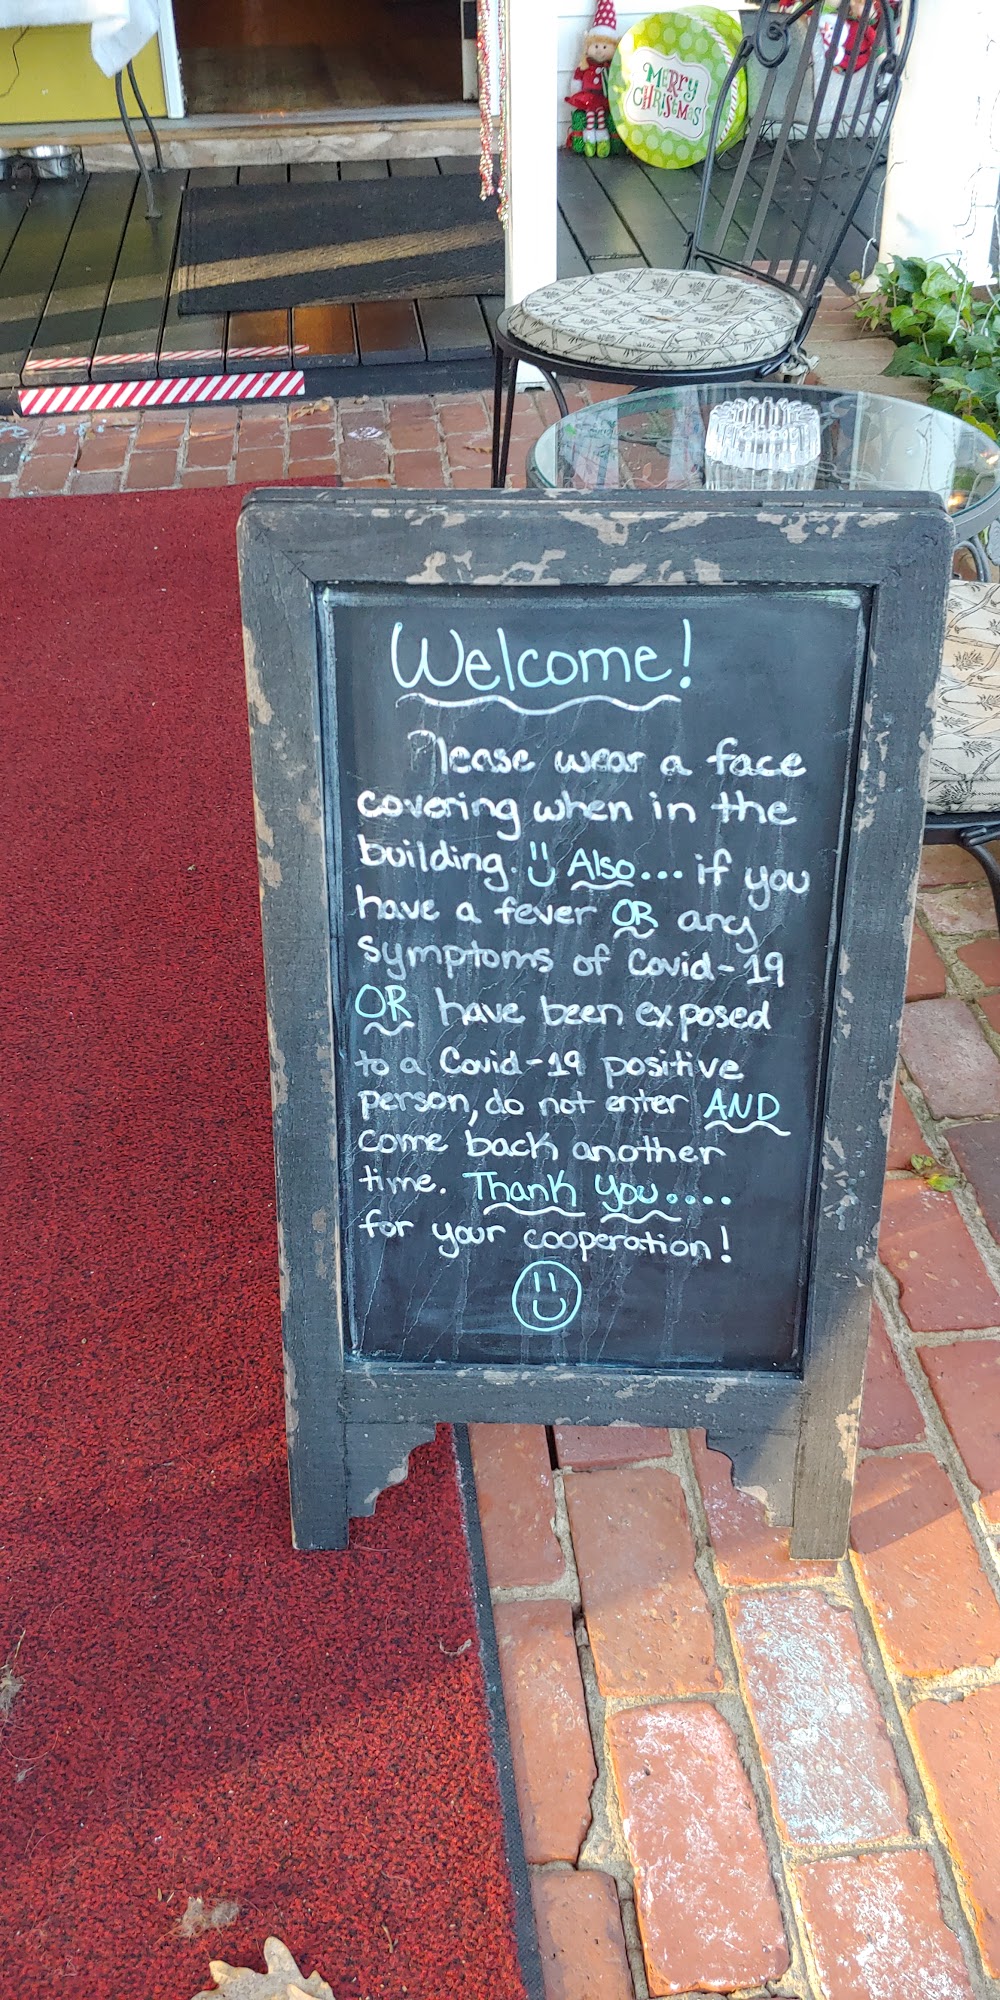 MERRY
CHRISTMAS
Welcome!
Please wear a face
covering when in the
building. Also... if you
have a fever OR any
symptoms of Covid-19
OR have been exposed
to a Covid-19 positive
person, do not enter AND
come back another
time. Thank you....
for your cooperation!